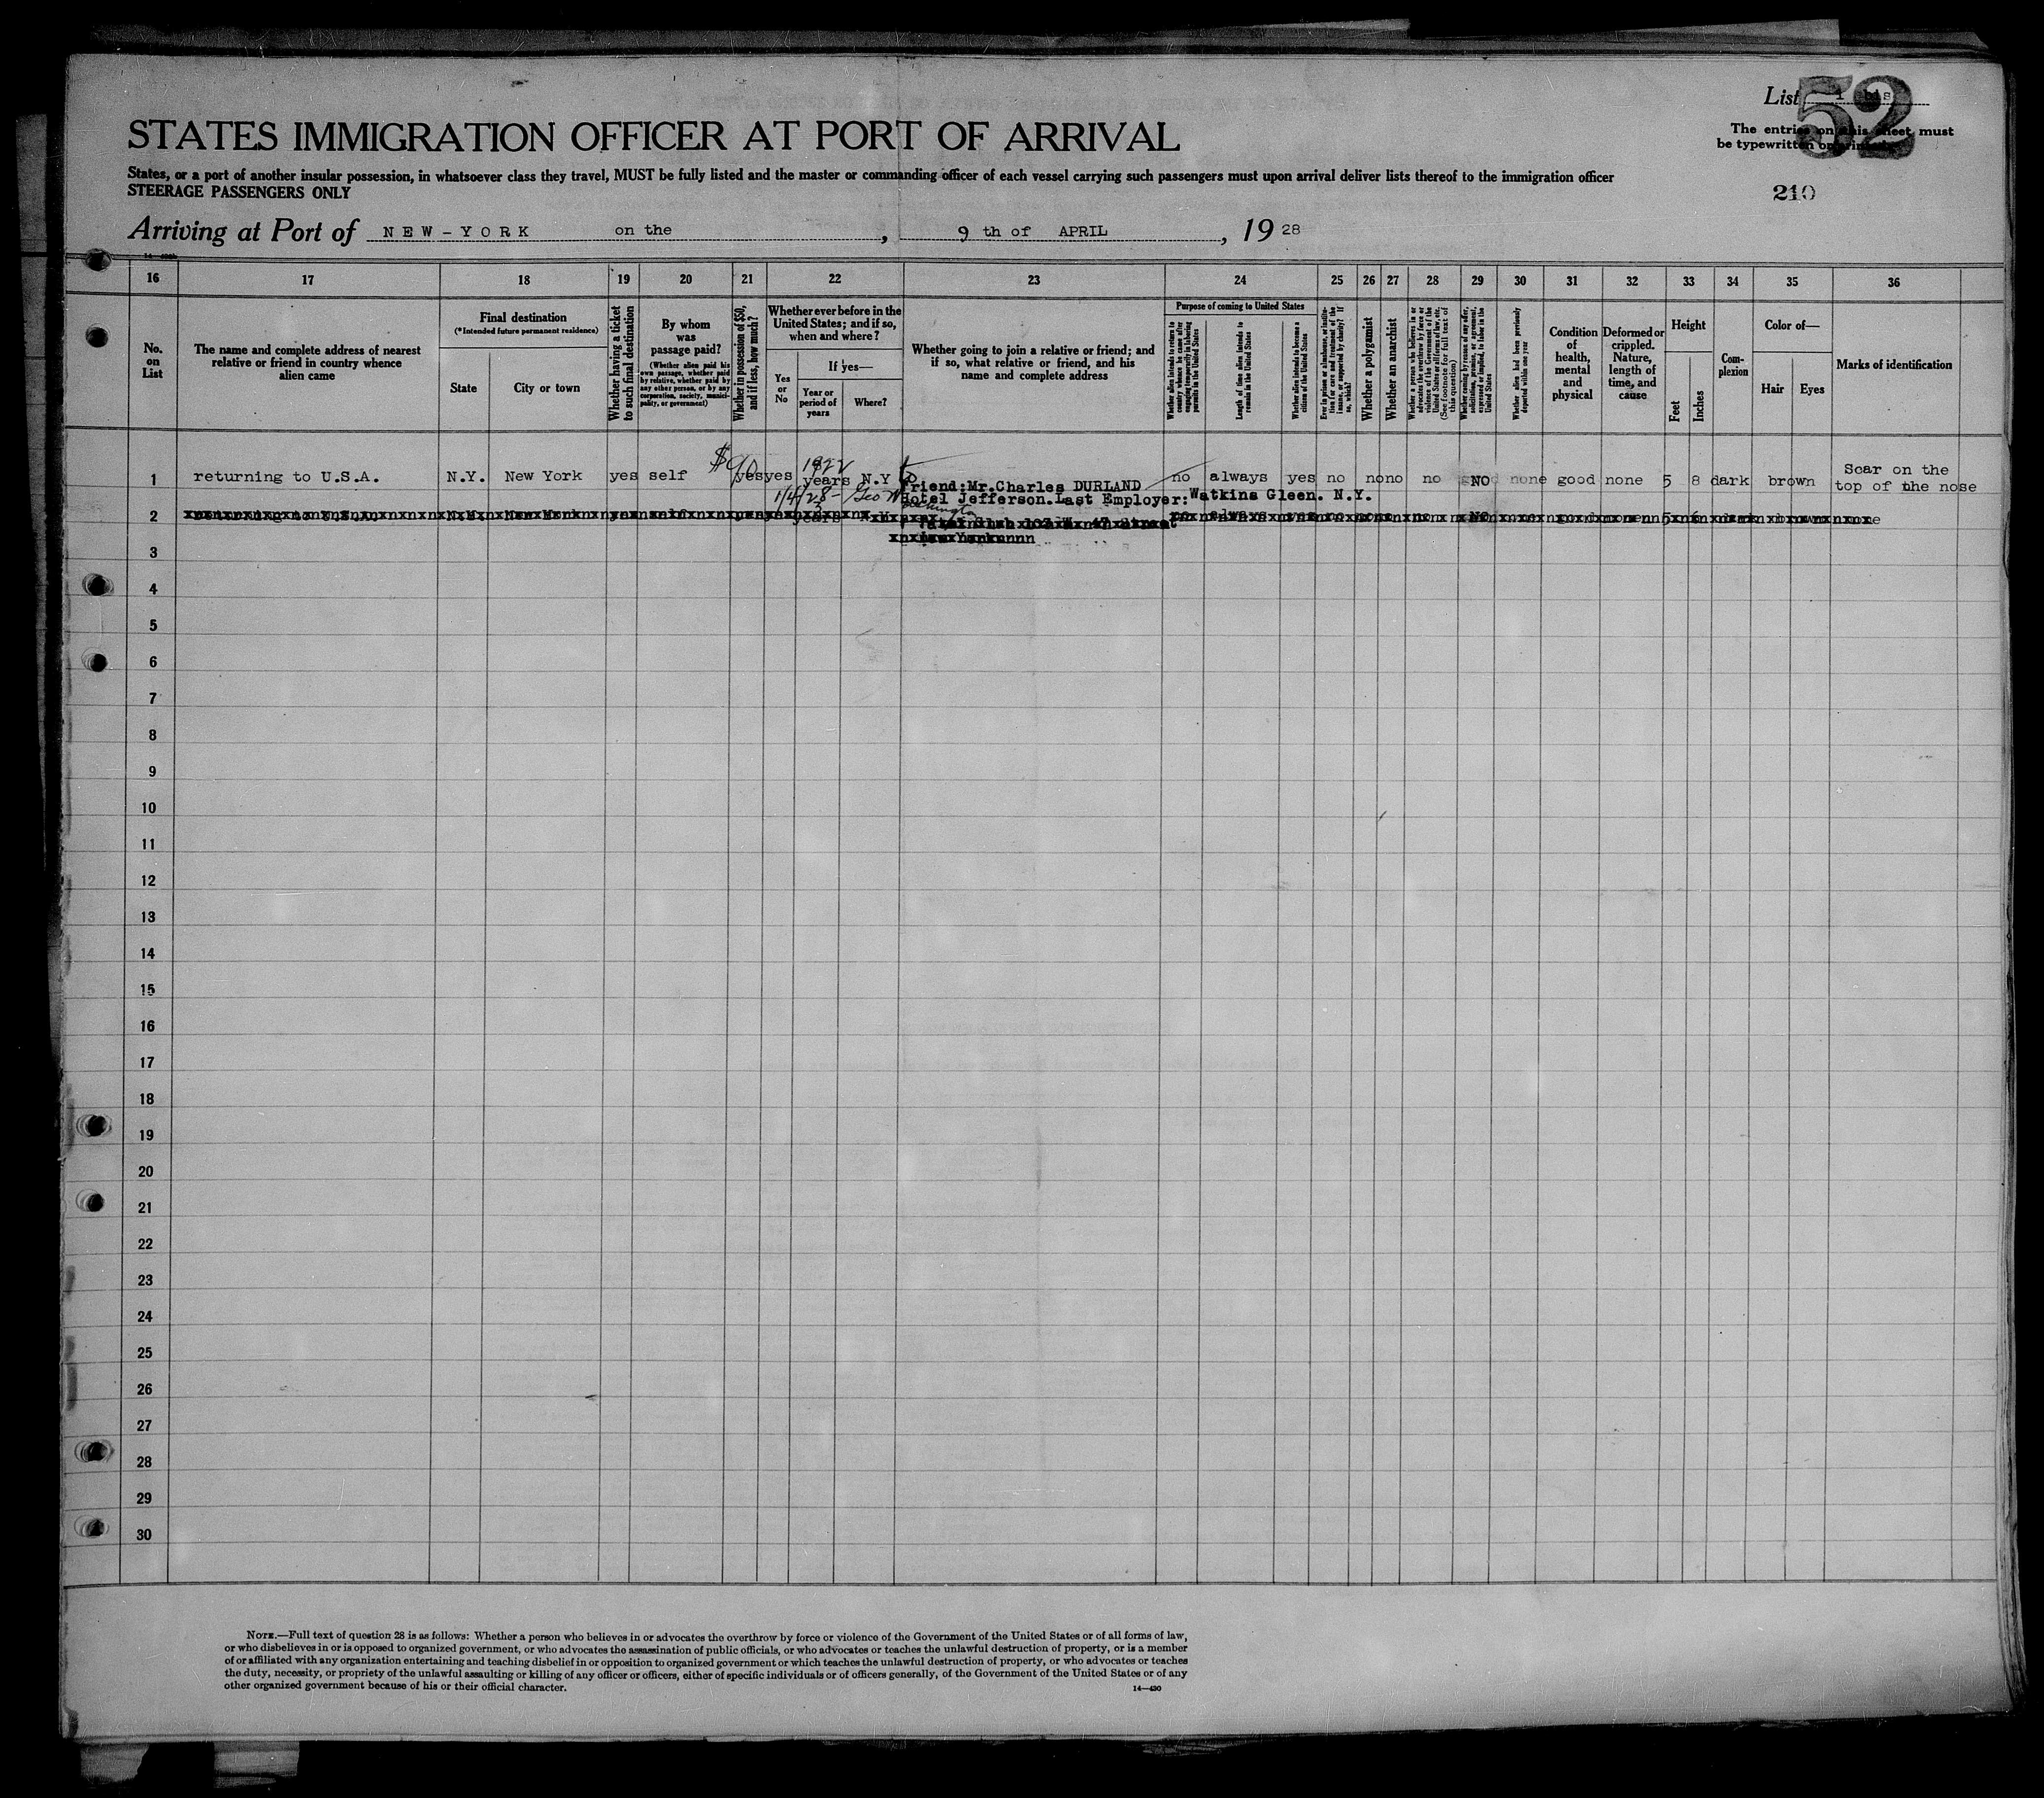 List 1 bis
52
The entries on this sheet must
be typewritten or printed.
STATES IMMIGRATION OFFICER AT PORT OF ARRIVAL
States, or a port of another insular possession, in whatsoever class they travel, MUST be fully listed and the master or commanding officer of each vessel carrying such passengers must upon arrival deliver lists thereof to the immigration officer
STEERAGE PASSENGERS ONLY
210
Arriving at Port of NEW-YORK on the , 9 th of APRIL , 19 28
16 17 18 19 20 21 22 23 24 25 26 27 28 29 30 31 32 33 34 35 36
No. on List
The name and complete address of nearest
relative or friend in country whence
alien came
Final destination
(*Intended future permanent residence)
State
City or town
Whether having a ticket
to such final destination
By whom
was
passage paid?
(Whether alien paid his
own passage, whether paid
by relative, whether paid by
any other person, or by any
corporation, society, munici-
pality, or government)
Whether in possession of $50,
and if less, how much?
Whether ever before in the
United States; and if so,
when and where?
Yes
or
No
If yes—
Year or
period of
years
Where?
Whether going to join a relative or friend; and
if so, what relative or friend, and his
name and complete address
Purpose of coming to United States
Whether alien intends to return to
country whence he came after
engaging temporarily in laboring
pursuits in the United States
Length of time alien intends to
remain in the United States
Whether alien intends to become a
citizen of the United States
Ever in prison or almshouse, or institu-
tion for care and treatment of the
insane, or supported by charity? If
so, which?
Whether a polygamist
Whether an anarchist
Whether a person who believes in or
advocates the overthrow by force or
violence of the Government of the
United States or all forms of law, etc.
(See footnote for full text of
this question)
Whether coming by reason of any offer,
solicitation, promise, or agreement,
expressed or implied, to labor in the
United States
Whether alien had been previously
deported within one year
Condition
of
health,
mental
and
physical
Deformed or
crippled.
Nature,
length of
time, and
cause
Height
Feet
Inches
Com-
plexion
Color of—
Hair
Eyes
Marks of identification
1 returning to U.S.A. N.Y. New York yes self $90 yes yes 1922 years N.Y no always yes no no no no NO none good none 5 8 dark brown Scar on the
top of the nose
Friend:Mr.Charles DURLAND
1/4/28- Geo Washington
Hotel Jefferson.Last Employer:Watkins Gleen. N.Y.
2
3
4
5
6
7
8
9
10
11
12
13
14
15
16
17
18
19
20
21
22
23
24
25
26
27
28
29
30
NOTE.—Full text of question 28 is as follows: Whether a person who believes in or advocates the overthrow by force or violence of the Government of the United States or of all forms of law,
or who disbelieves in or is opposed to organized government, or who advocates the assassination of public officials, or who advocates or teaches the unlawful destruction of property, or is a member
of or affiliated with any organization entertaining and teaching disbelief in or opposition to organized government or which teaches the unlawful destruction of property, or who advocates or teaches
the duty, necessity, or propriety of the unlawful assaulting or killing of any officer or officers, either of specific individuals or of officers generally, of the Government of the United States or of any
other organized government because of his or their official character.
14—430